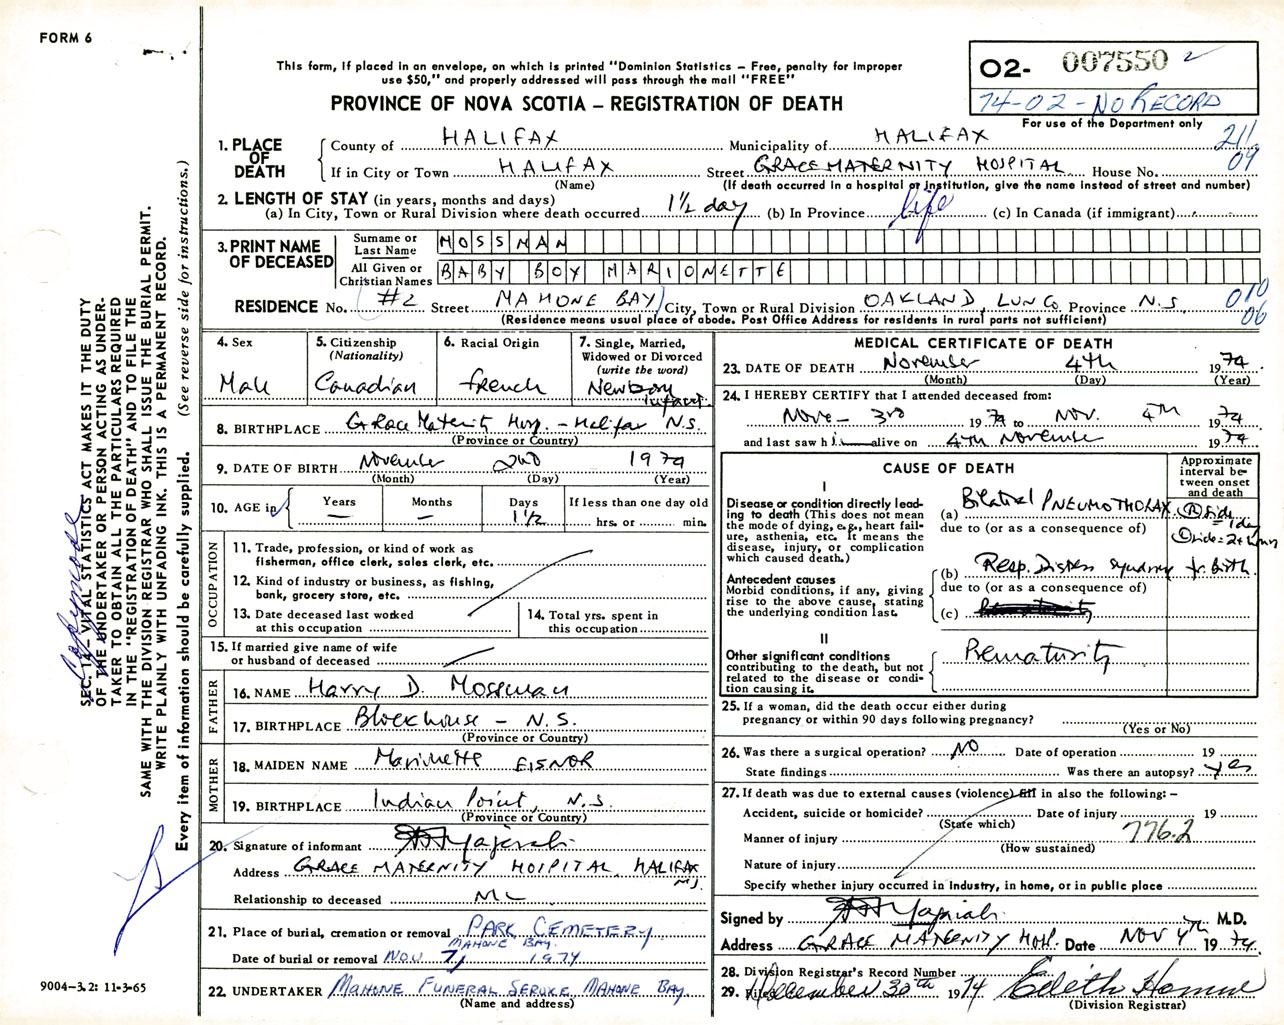 FORM 6
This form, if placed in an envelope, on which is printed "Dominion Statistics – Free, penalty for improper
use $50," and properly addressed will pass through the mail "FREE"
PROVINCE OF NOVA SCOTIA – REGISTRATION OF DEATH
02- 007550
74-02-NO RECORD
For use of the Department only
211
09
1. PLACE OF DEATH
County of HALIFAX Municipality of HALIFAX
If in City or Town HALIFAX Street GRACE MATERNITY HOSPITAL House No.
(Name) (If death occurred in a hospital or institution, give the name instead of street and number)
2. LENGTH OF STAY (in years, months and days)
(a) In City, Town or Rural Division where death occurred 1½ day (b) In Province life (c) In Canada (if immigrant)
3. PRINT NAME OF DECEASED
Surname or Last Name MOSSMAN
All Given or Christian Names BABY BOY MARIONETTE
RESIDENCE No. #2 Street MAHONE BAY City, Town or Rural Division OAKLAND, LUN Co. Province N.S.
(Residence means usual place of abode. Post Office Address for residents in rural parts not sufficient)
010
06
4. Sex
Male
5. Citizenship
(Nationality)
Canadian
6. Racial Origin
French
7. Single, Married,
Widowed or Divorced
(write the word)
Newborn
infant.
8. BIRTHPLACE Grace Maternity Hosp. – Halifax N.S.
(Province or Country)
9. DATE OF BIRTH November 2nd 1974
(Month) (Day) (Year)
10. AGE in
Years –
Months –
Days 1½
If less than one day old
hrs. or min.
OCCUPATION
11. Trade, profession, or kind of work as
fisherman, office clerk, sales clerk, etc.
12. Kind of industry or business, as fishing,
bank, grocery store, etc.
13. Date deceased last worked
at this occupation
14. Total yrs. spent in
this occupation
15. If married give name of wife
or husband of deceased
FATHER
16. NAME Harry D. Mossman
17. BIRTHPLACE Blockhouse – N.S.
(Province or Country)
MOTHER
18. MAIDEN NAME EISNOR
19. BIRTHPLACE Indian Point, N.S.
(Province or Country)
20. Signature of informant
Address GRACE MATERNITY HOSPITAL, HALIFAX
Relationship to deceased
21. Place of burial, cremation or removal PARK CEMETERY
MAHONE BAY.
Date of burial or removal NOV 7, 1974
22. UNDERTAKER MAHONE FUNERAL SERVICE MAHONE BAY
(Name and address)
MEDICAL CERTIFICATE OF DEATH
23. DATE OF DEATH November 4th 1974
(Month) (Day) (Year)
24. I HEREBY CERTIFY that I attended deceased from:
Nove– 3rd 1974 to Nov. 4th 1974
and last saw him alive on 4th November 1974
CAUSE OF DEATH
Approximate
interval be-
tween onset
and death
I
Disease or condition directly lead-
ing to death (This does not mean
the mode of dying, e.g., heart fail-
ure, asthenia, etc. It means the
disease, injury, or complication
which caused death.)
(a) Bilateral PNEUMOTHORAX
(R) side = 1 day
(L) side = 2+ hours
due to (or as a consequence of)
Antecedent causes
Morbid conditions, if any, giving
rise to the above cause, stating
the underlying condition last.
(b) Resp. Distress Syndrome fr. Birth.
due to (or as a consequence of)
(c)
II
Other significant conditions
contributing to the death, but not
related to the disease or condi-
tion causing it.
Prematurity
25. If a woman, did the death occur either during
pregnancy or within 90 days following pregnancy?
(Yes or No)
26. Was there a surgical operation? NO Date of operation 19
State findings Was there an autopsy? Yes
27. If death was due to external causes (violence) fill in also the following: –
Accident, suicide or homicide? Date of injury 19
(State which)
Manner of injury 776.2
(How sustained)
Nature of injury
Specify whether injury occurred in Industry, in home, or in public place
Signed by M.D.
Address GRACE MATERNITY HOSP. Date NOV 4th 1974.
28. Division Registrar's Record Number
29. Filed December 30th 1974 Edith
(Division Registrar)
SEC. 14 – VITAL STATISTICS ACT MAKES IT THE DUTY
OF THE UNDERTAKER OR PERSON ACTING AS UNDER-
TAKER TO OBTAIN ALL THE PARTICULARS REQUIRED
IN THE "REGISTRATION OF DEATH" AND TO FILE THE
SAME WITH THE DIVISION REGISTRAR WHO SHALL ISSUE THE BURIAL PERMIT.
WRITE PLAINLY WITH UNFADING INK. THIS IS A PERMANENT RECORD.
Every item of information should be carefully supplied. (See reverse side for instructions.)
9004-3.2: 11-3-65